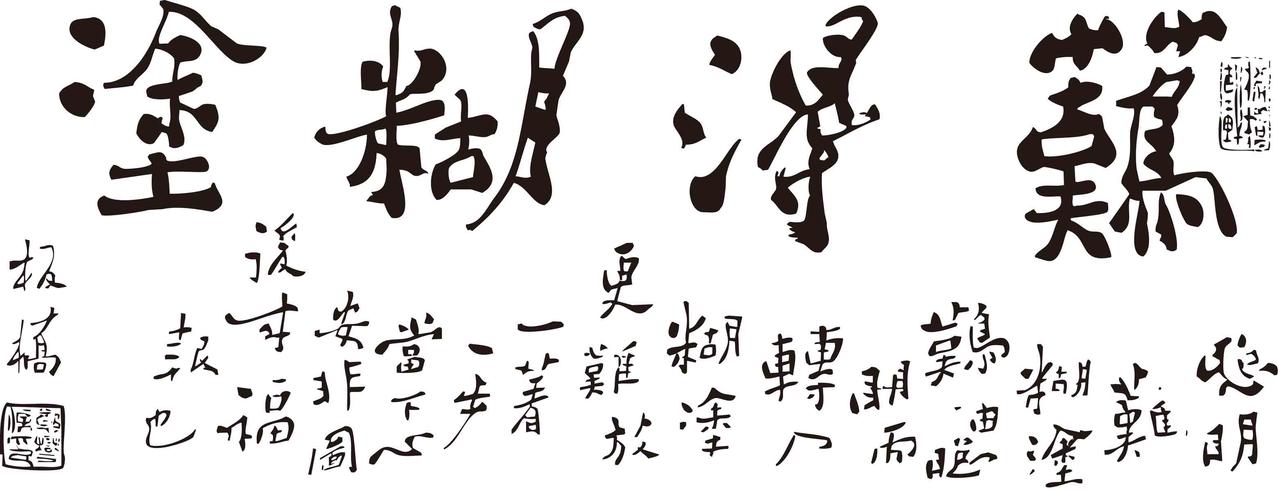 難得糊塗
聰明
難
糊塗
難由聰
明而
轉入
糊塗
更難放
一著
一步
當下心
安非圖
後來福
報也
板橋